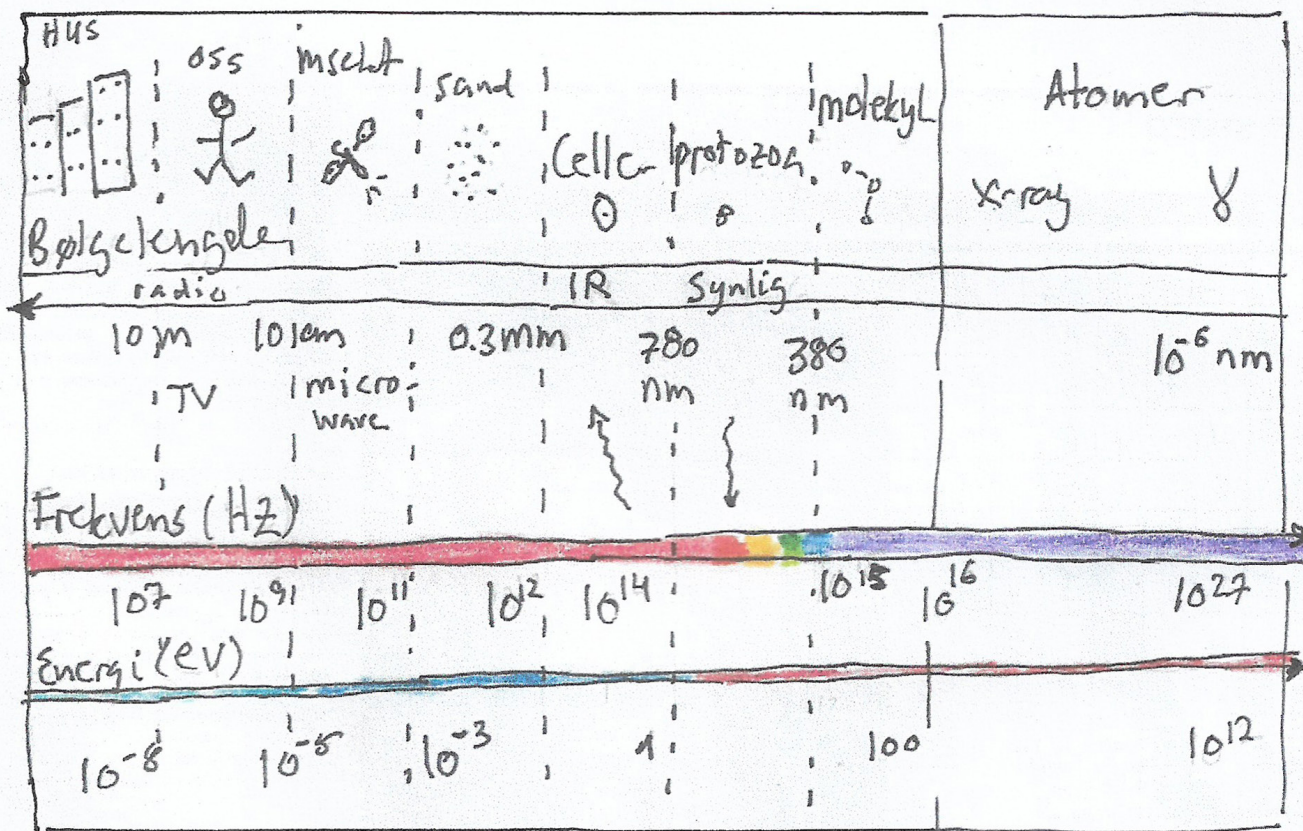 HUS
oss
insekt
sand
Celle
protozoa
molekyl
Atomer
X-ray γ
Bølgelengde
radio IR Synlig
10 m 10 cm 0.3mm 780 nm 380 nm 10⁻⁶ nm
TV micro wave
Frekvens (Hz)
10⁷ 10⁹ 10¹¹ 10¹² 10¹⁴ 10¹⁵ 10¹⁶ 10²⁷
Energi (eV)
10⁻⁸ 10⁻⁵ 10⁻³ 1 100 10¹²